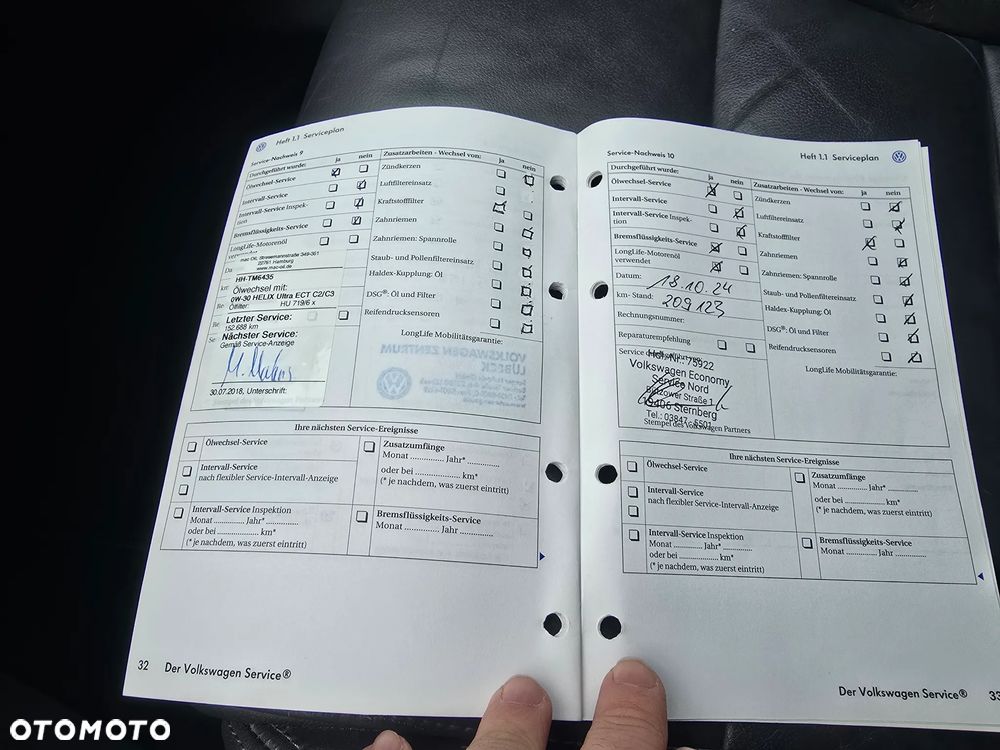 Heft 1.1 Serviceplan
Service-Nachweis 9
Durchgeführt wurde:
ja
nein
Ölwechsel-Service
Intervall-Service
Intervall-Service Inspek-
tion
Bremsflüssigkeits-Service
LongLife-Motorenöl
mac OIL Stresemannstraße 349-351
22761 Hamburg
www.mac-oil.de
HH-TM6435
Ölwechsel mit:
0W-30 HELIX Ultra ECT C2/C3
Ölfilter: HU 719/6 x
Letzter Service:
152.688 km
Nächster Service:
Gemäß Service-Anzeige
30.07.2018, Unterschrift:
Stempel des Volkswagen Partners
Zusatzarbeiten - Wechsel von:
ja
nein
Zündkerzen
Luftfiltereinsatz
Kraftstofffilter
Zahnriemen
Zahnriemen: Spannrolle
Staub- und Pollenfiltereinsatz
Haldex-Kupplung: Öl
DSG®: Öl und Filter
Reifendrucksensoren
LongLife Mobilitätsgarantie:
VOLKSWAGEN ZENTRUM
LÜBECK
Ihre nächsten Service-Ereignisse
Ölwechsel-Service
Intervall-Service
nach flexibler Service-Intervall-Anzeige
Intervall-Service Inspektion
Monat .............. Jahr* ..............
oder bei .................... km*
(* je nachdem, was zuerst eintritt)
Zusatzumfänge
Monat .............. Jahr* ..............
oder bei .................... km*
(* je nachdem, was zuerst eintritt)
Bremsflüssigkeits-Service
Monat .............. Jahr ..............
32
Der Volkswagen Service®
Service-Nachweis 10
Heft 1.1 Serviceplan
Durchgeführt wurde:
ja
nein
Ölwechsel-Service
Intervall-Service
Intervall-Service Inspek-
tion
Bremsflüssigkeits-Service
LongLife-Motorenöl
verwendet
Datum: 18.10.24
km- Stand: 209123
Rechnungsnummer:
Reparaturempfehlung
Hdl.-Nr.: 75922
Volkswagen Economy
Service Nord
Bützower Straße 1
19406 Sternberg
Tel.: 03847 - 6501
Stempel des Volkswagen Partners
Zusatzarbeiten - Wechsel von:
ja
nein
Zündkerzen
Luftfiltereinsatz
Kraftstofffilter
Zahnriemen
Zahnriemen: Spannrolle
Staub- und Pollenfiltereinsatz
Haldex-Kupplung: Öl
DSG®: Öl und Filter
Reifendrucksensoren
LongLife Mobilitätsgarantie:
Ihre nächsten Service-Ereignisse
Ölwechsel-Service
Intervall-Service
nach flexibler Service-Intervall-Anzeige
Intervall-Service Inspektion
Monat .............. Jahr* ..............
oder bei .................... km*
(* je nachdem, was zuerst eintritt)
Zusatzumfänge
Monat .............. Jahr* ..............
oder bei .................... km*
(* je nachdem, was zuerst eintritt)
Bremsflüssigkeits-Service
Monat .............. Jahr ..............
Der Volkswagen Service®
33
OTOMOTO